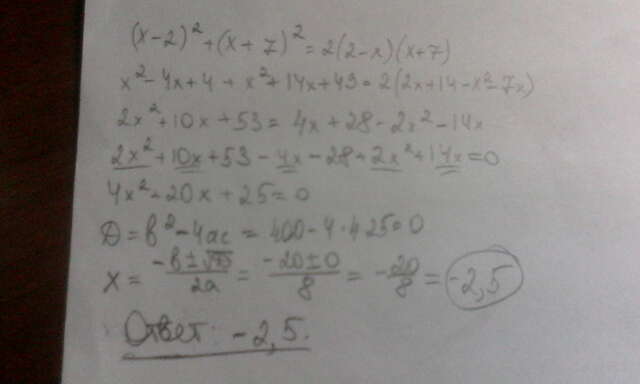 (x-2)²+(x+7)²=2(2-x)(x+7)
x²-4x+4+x²+14x+49=2(2x+14-x²-7x)
2x²+10x+53=4x+28-2x²-14x
2x²+10x+53-4x-28+2x²+14x=0
4x²+20x+25=0
D=b²-4ac=400-4·4·25=0
x = (-b±√D)/2a = (-20±0)/8 = -20/8 = -2,5
Ответ: -2,5.